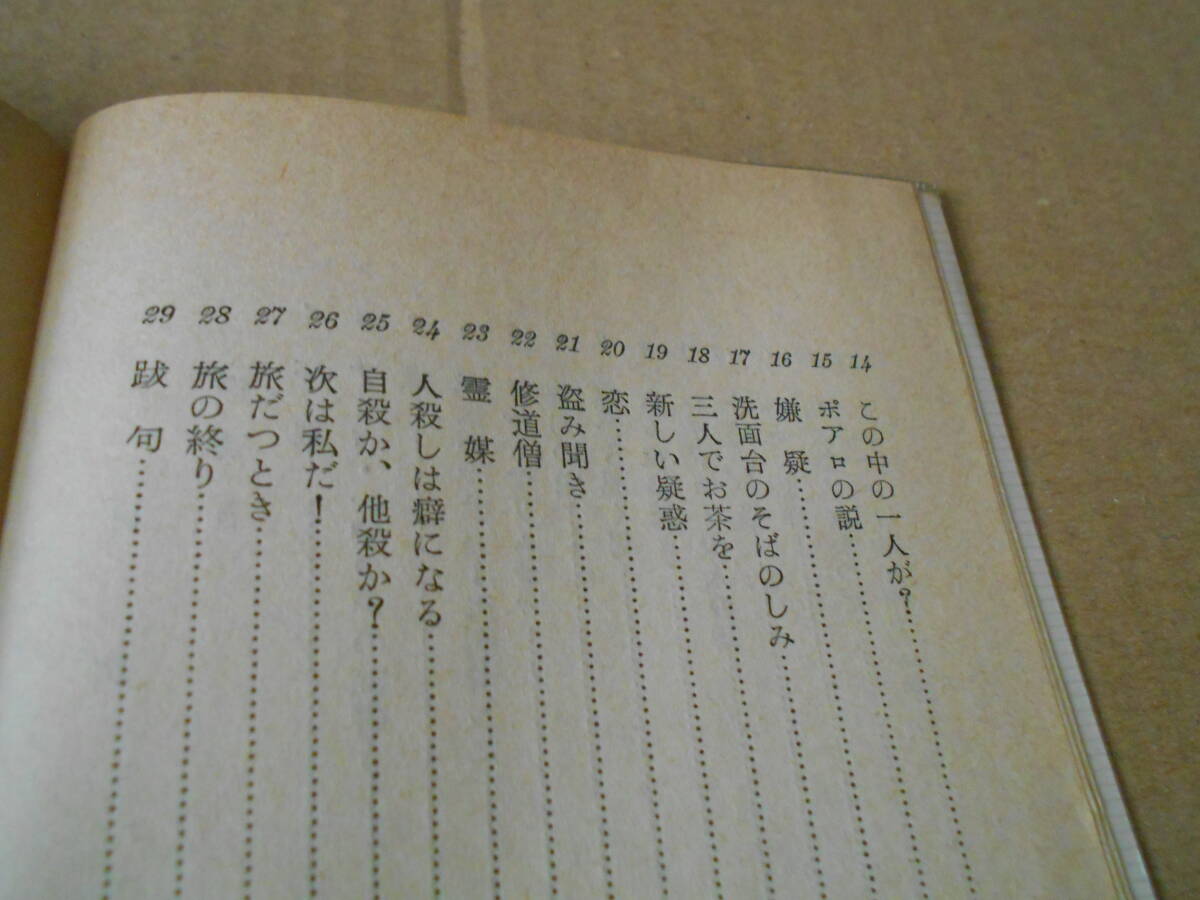 14 この中の一人が?
15 ポアロの説
16 嫌疑
17 洗面台のそばのしみ
18 三人でお茶を
19 新しい疑惑
20 恋
21 盗み聞き
22 修道僧
23 霊媒
24 人殺しは癖になる
25 自殺か、他殺か?
26 次は私だ!
27 旅だつとき
28 旅の終り
29 跋句